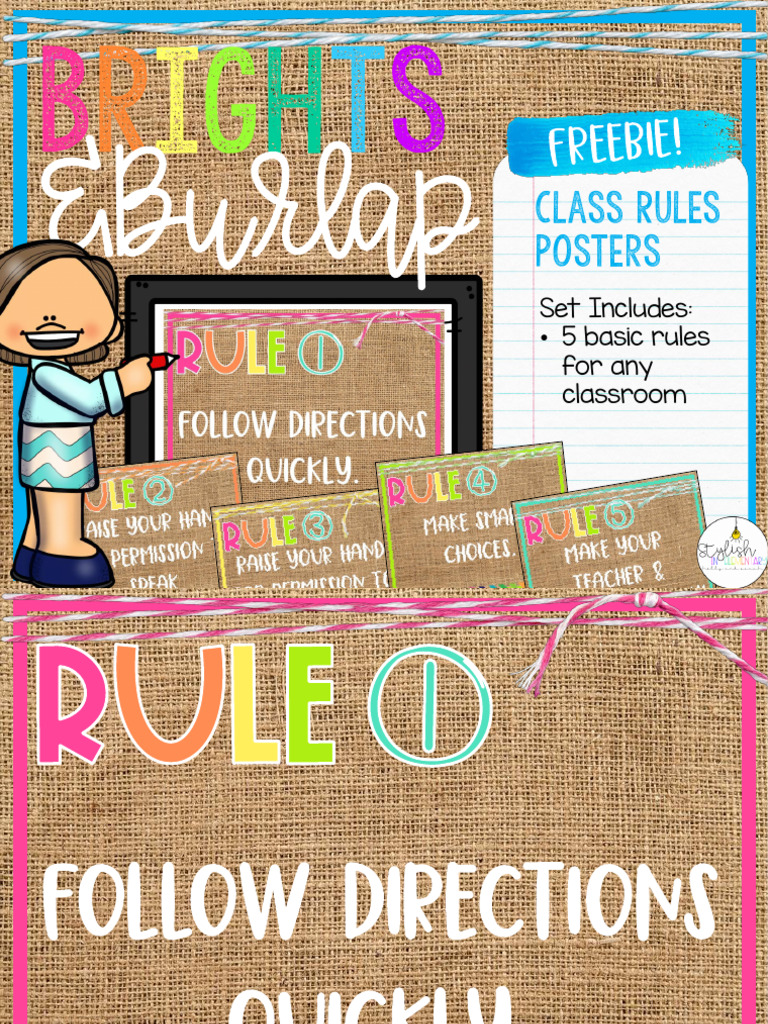 BRIGHTS
& Burlap
FREEBIE!
CLASS RULES
POSTERS
Set Includes:
• 5 basic rules
for any
classroom
RULE 1
FOLLOW DIRECTIONS
QUICKLY.
RULE 2
RAISE YOUR HAN
PERMISSION
SPEAK
RULE 3
RAISE YOUR HAND
PERMISSION TO
RULE 4
MAKE SMA
CHOICES.
RULE 5
MAKE YOUR
TEACHER &
Stylish
RULE 1
FOLLOW DIRECTIONS
QUICKLY